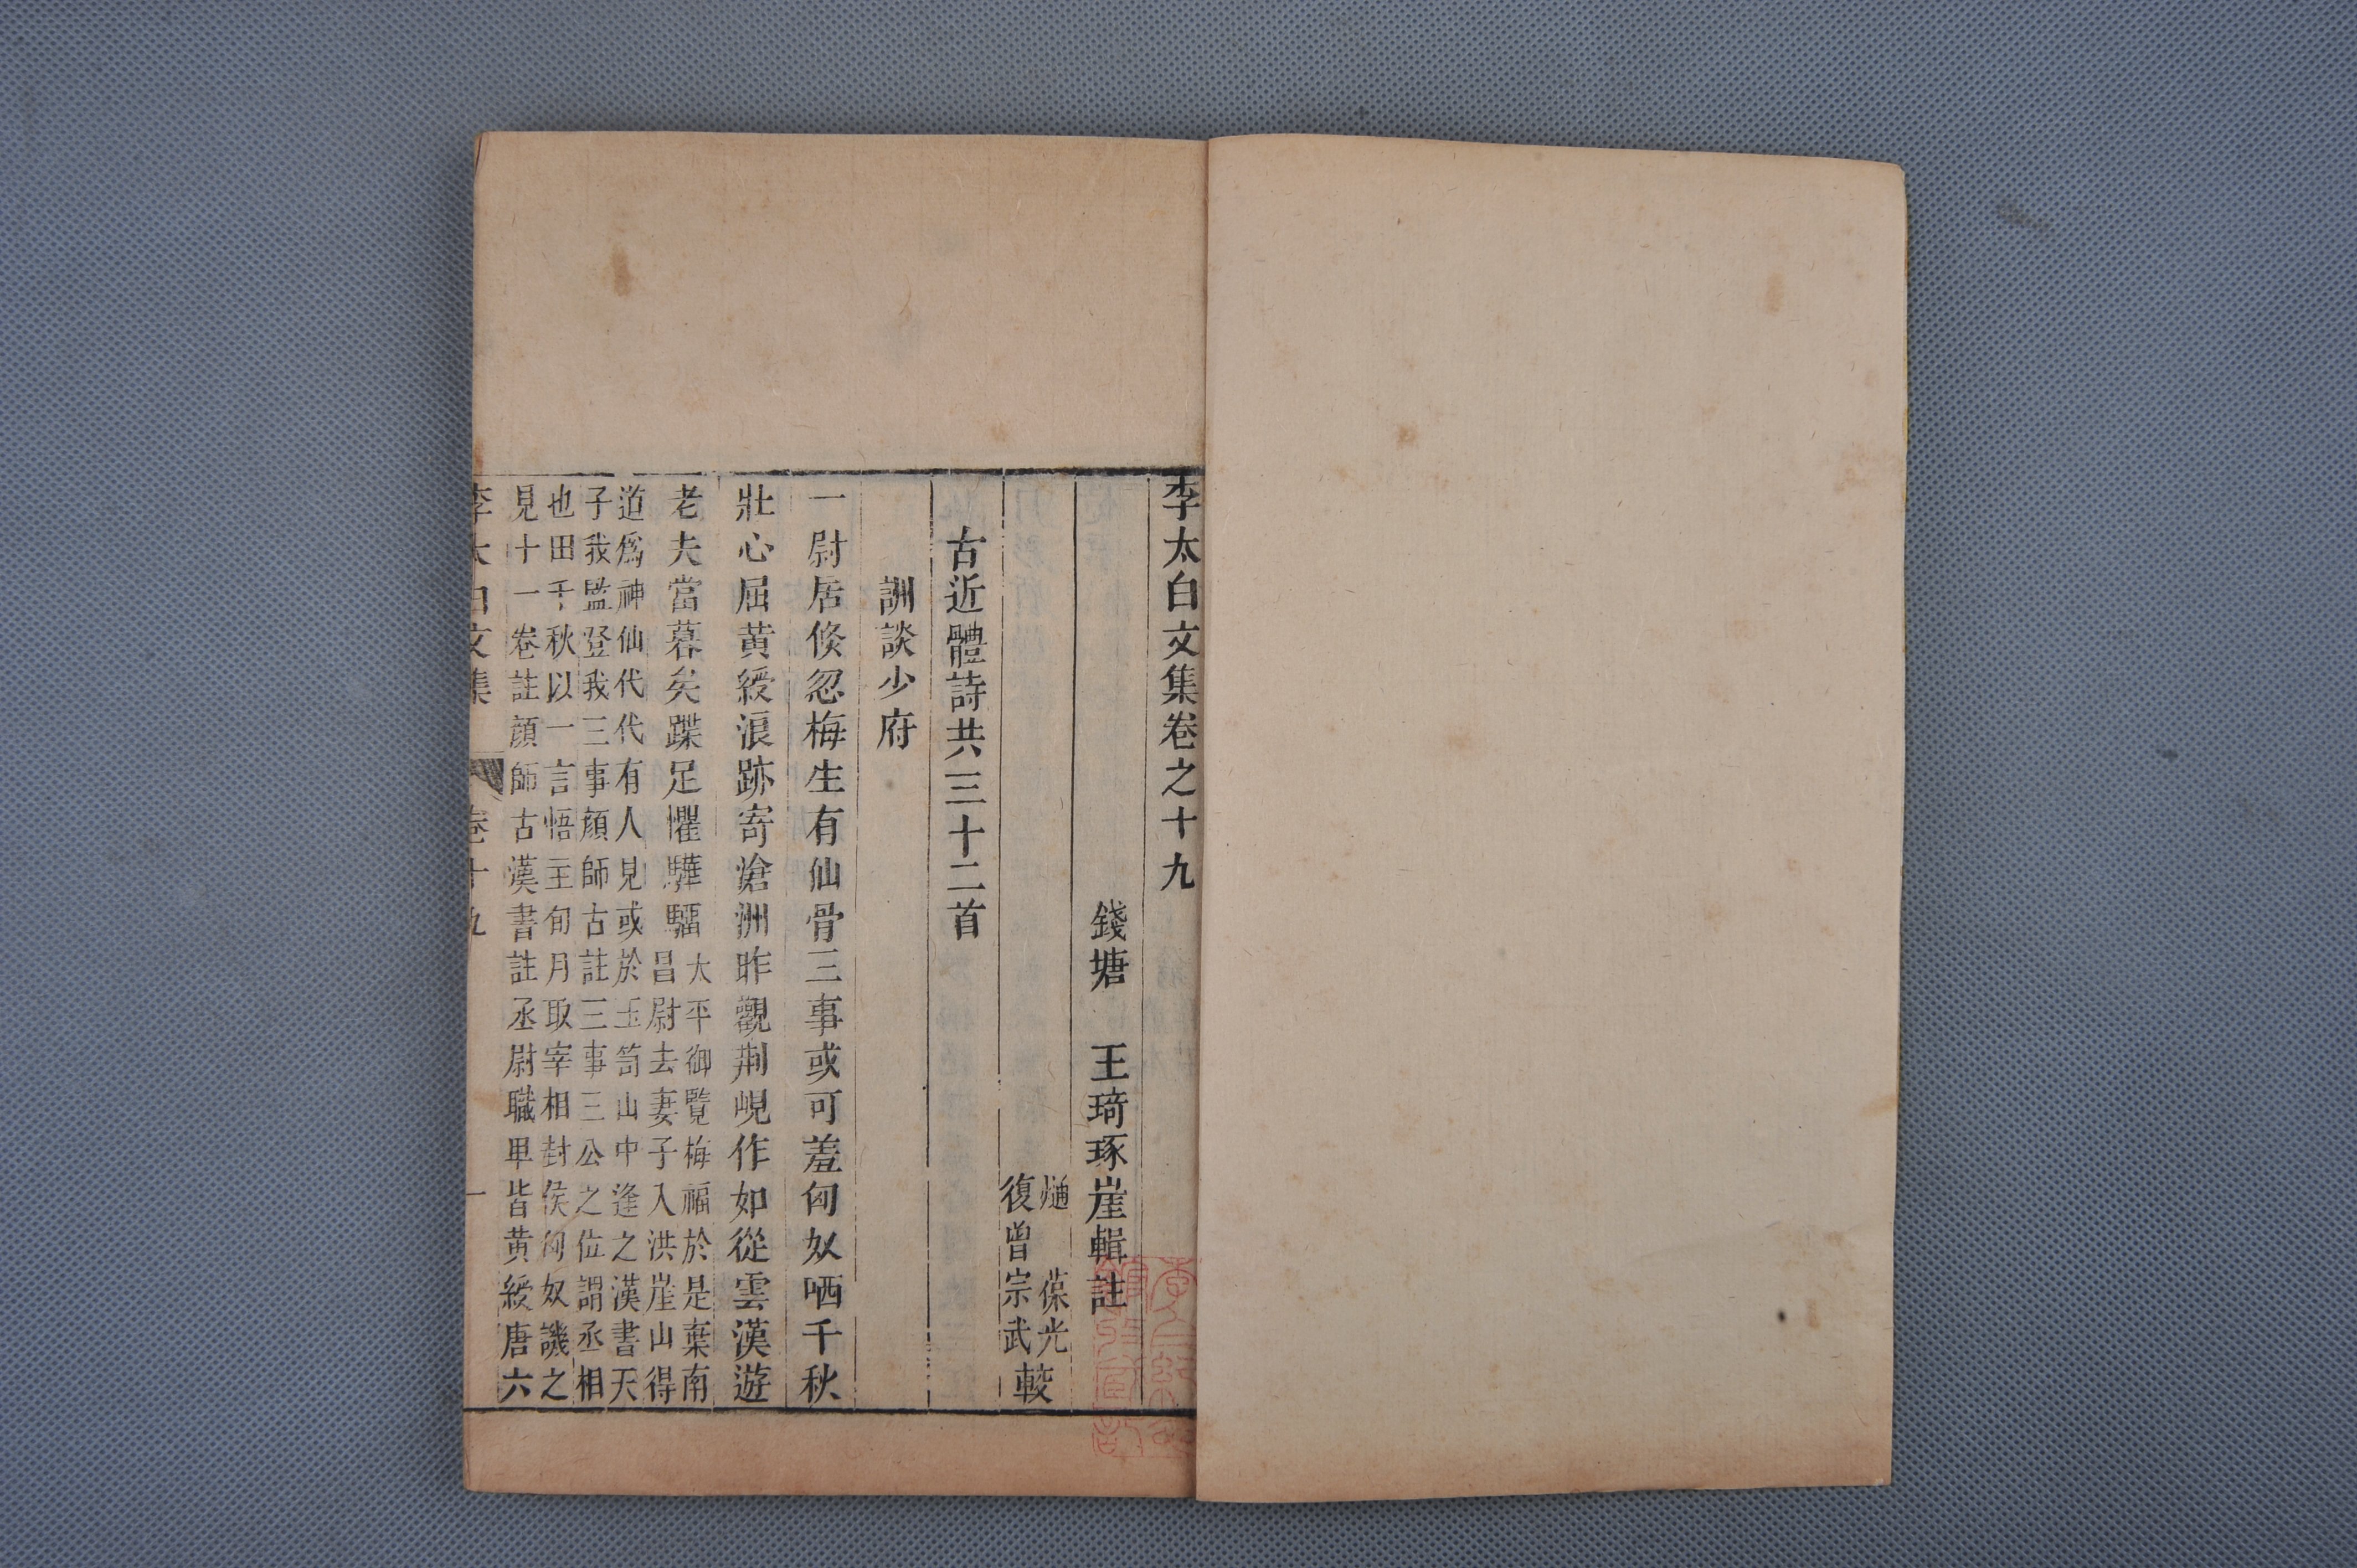 李太白文集卷之十九
錢塘 王琦琢崖輯註
葆光
復曾宗武較
古近體詩共三十二首
詶談少府
一尉居倐忽梅生有仙骨三事或可羞匈奴哂千秋
壯心屈黄綬浪跡寄滄洲昨觀荆峴作如從雲漢遊
老夫當暮矣蹀足懼驊騮
太平御覽梅福於是棄南
昌尉去妻子入洪崖山得
道爲神仙代代有人見或於玉笥山中逢之漢書天
子我監登我三事顔師古註三事三公之位謂丞相
也田千秋以一言悟主旬月取宰相封侯匈奴譏之
見十一卷註顔師古漢書註丞尉職卑皆黄綬唐六
李太白文集 卷十九 一